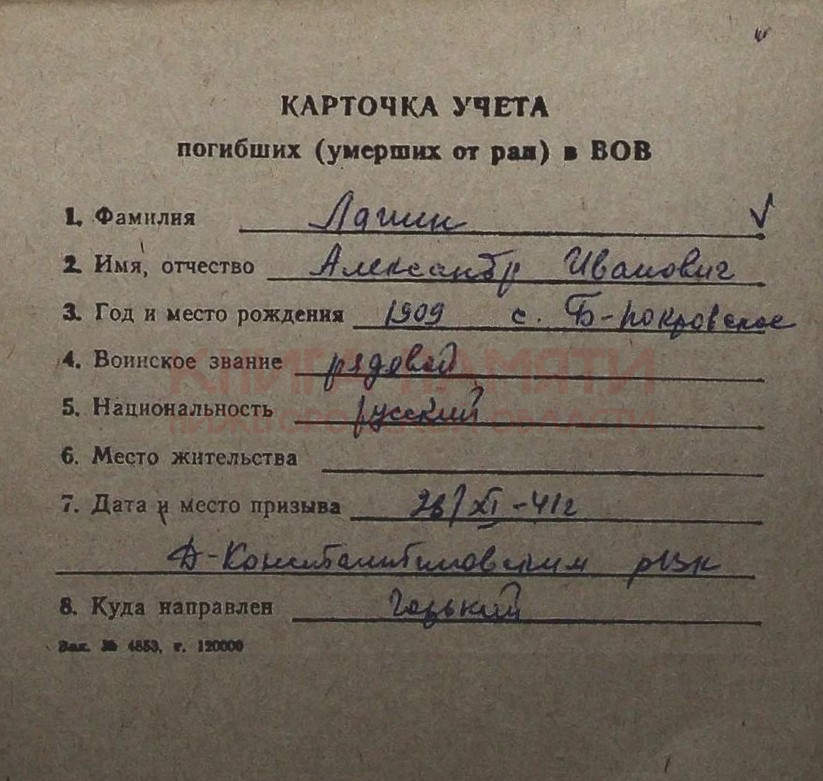 КАРТОЧКА УЧЕТА
погибших (умерших от ран) в ВОВ
1. Фамилия Лашин
2. Имя, отчество Александр Иванович
3. Год и место рождения 1909 с. Б-Покровское
4. Воинское звание рядовой
КНИГА ПАМЯТИ
5. Национальность русский
НИЖЕГОРОДСКОЙ ОБЛАСТИ
6. Место жительства
7. Дата и место призыва 28/XI-41г
Д-Константиновским рвк
8. Куда направлен Горький
Зак. № 4853, т. 120000